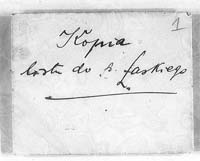 1
Kopia
listu do B. Łaskiego